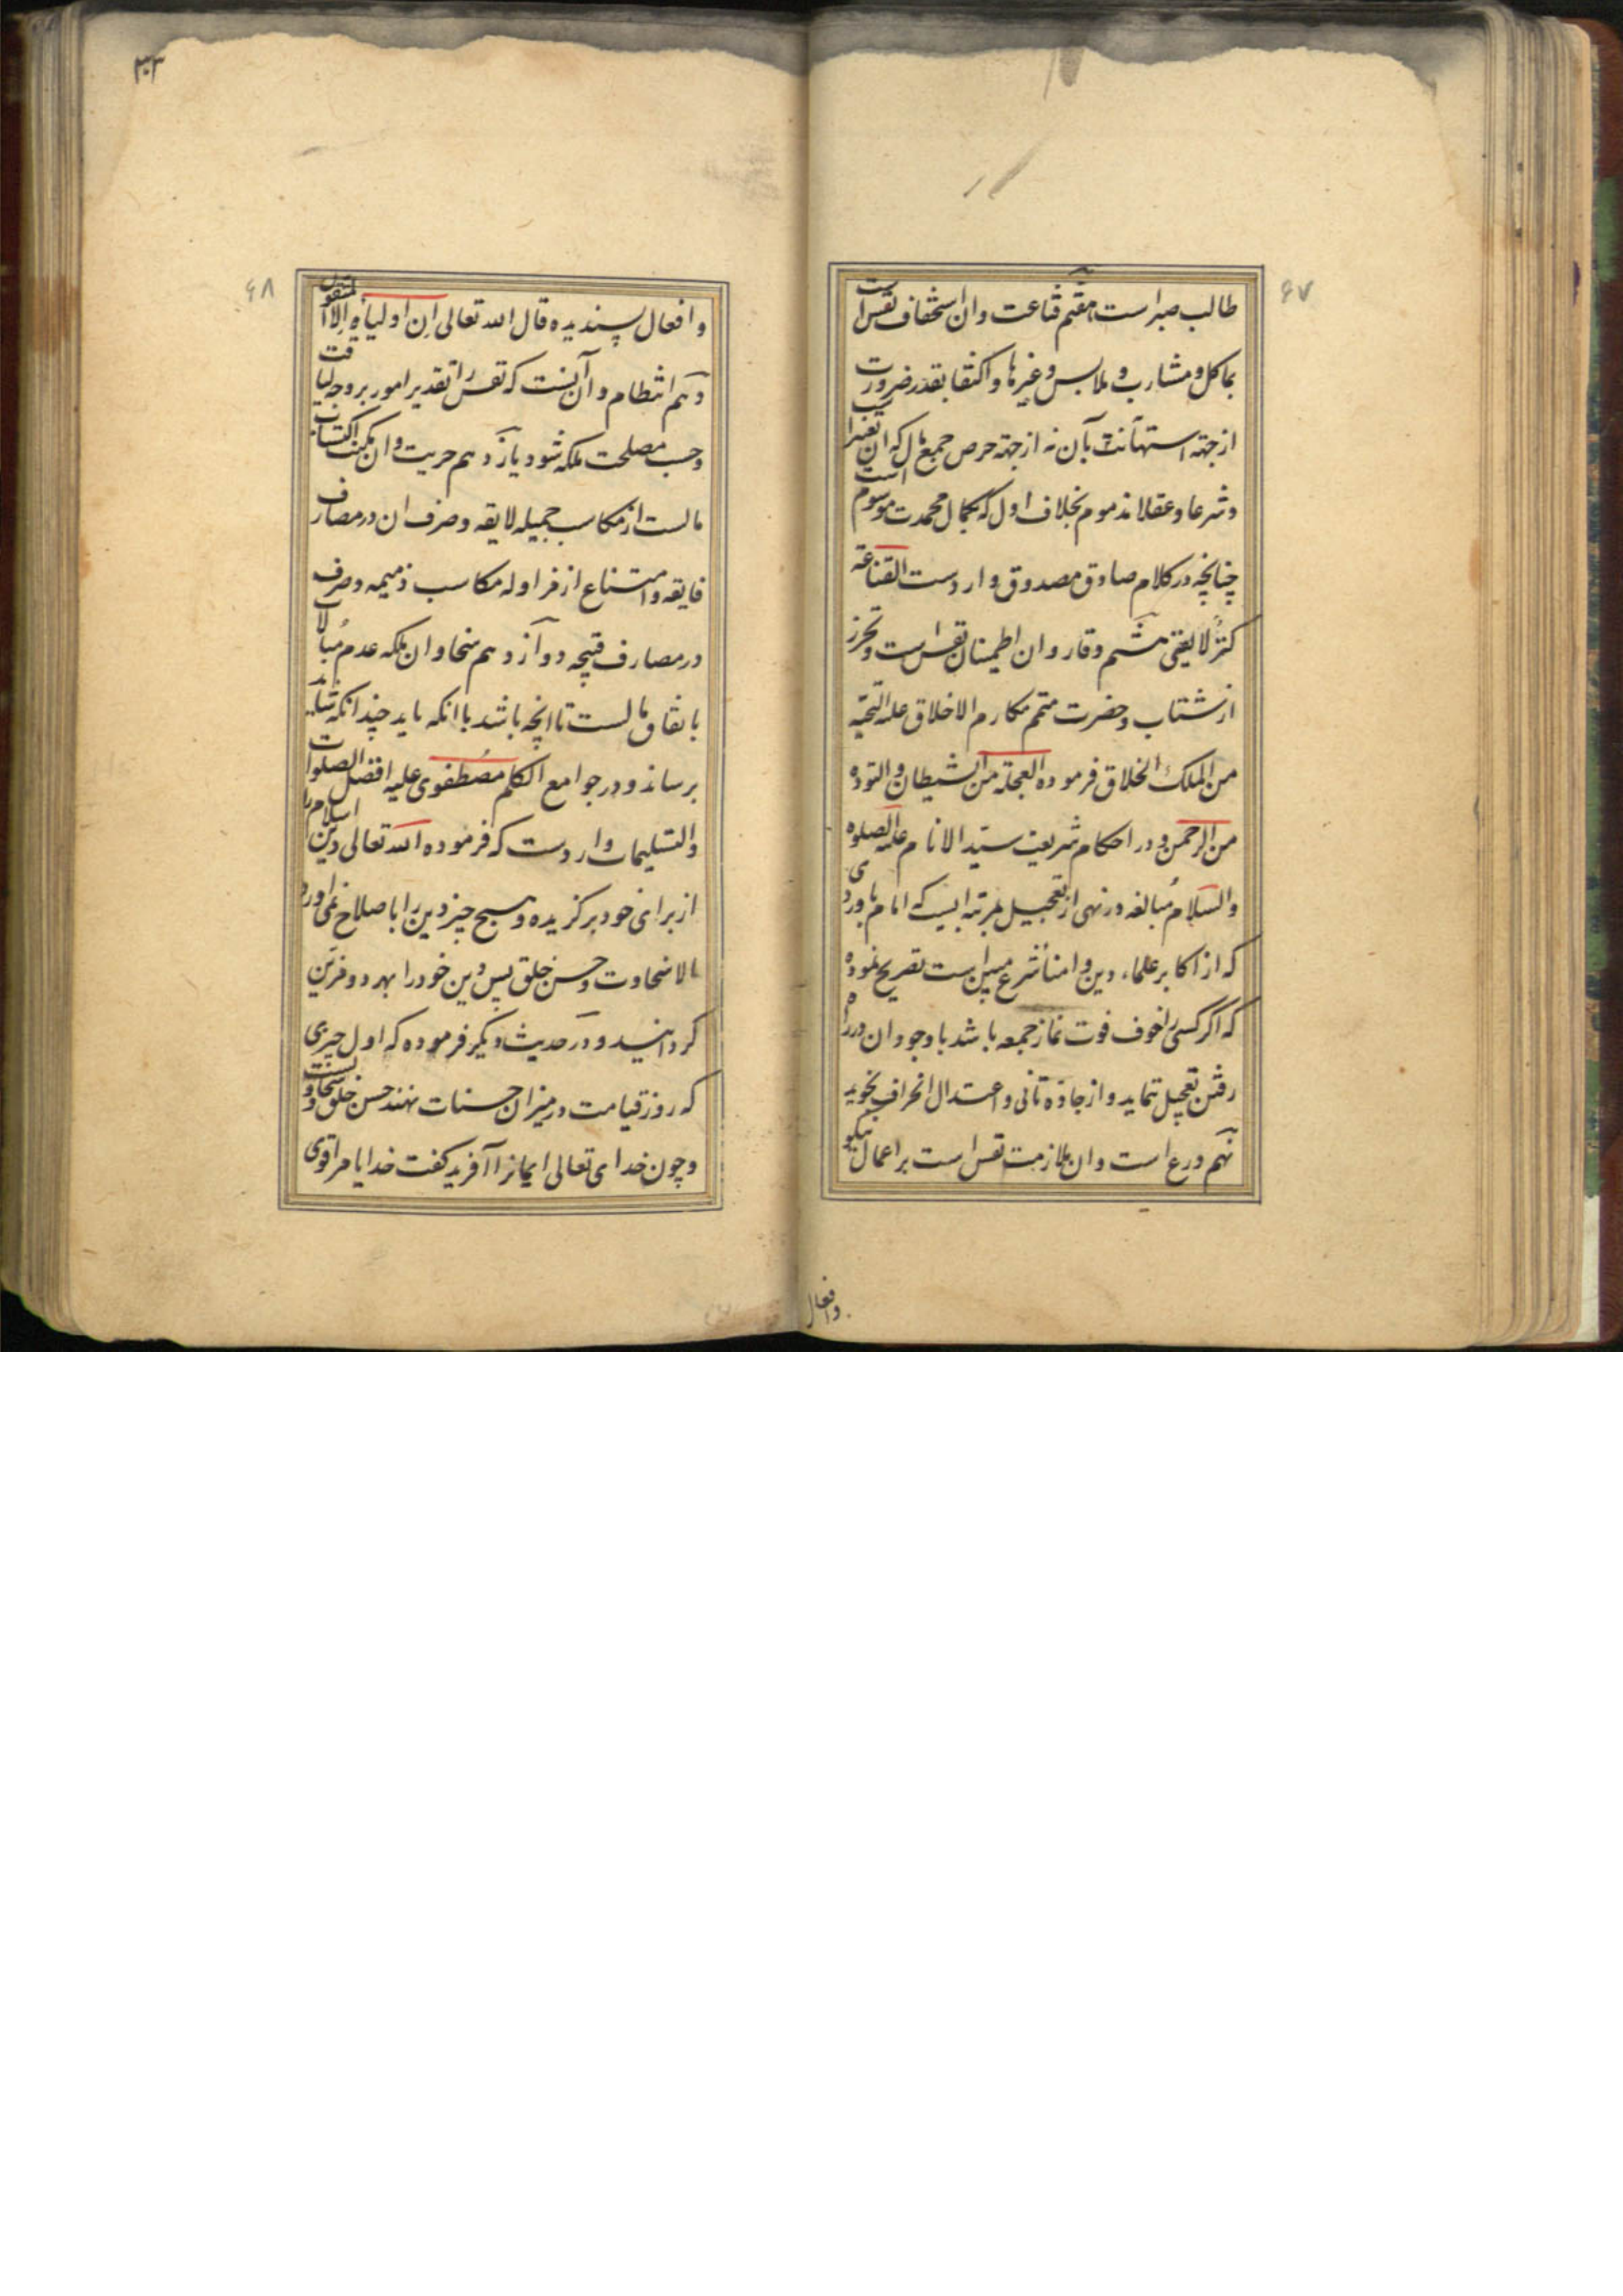 ۶۷
طالب صبر است هفتم قناعت و ان استخفاف نفس است
بماکل و مشارب و ملابس و غیرها و اکتفا بقدر ضرورت
از جهته استهانت بآن نه از جهته حرص جمع مال که ان
و شرعا و عقلا مذموم بخلاف اول که بکمال محمدت موسوم است
چنانچه در کلام صادق مصدوق وارد است القناعة
کنزٌ لا یفنی هشتم وقار و ان اطمینان نفس است و تحرز
از شتاب و حضرت متمم مکارم الاخلاق علیه التحیّه
من الملک الخلاق فرموده العجلة من الشیطان و التوده
من الرحمن و در احکام شریعت سیّد الانام علیه الصلوه
والسّلام مُبالغه در نهی از تعجیل بمرتبه ایست که امام باوردی
که از اکابر علماء دین و امناٴ شرع مبین است تصریح نموده
که اگر کسی را خوف فوت نماز جمعه باشد باوجود ان در راه
رفتن تعجیل ننماید و از جادّه تانی و اعتدال انحراف نجوید
نهم ورع است و ان ملازمت نفس است بر اعمال نیکو
وافعال
۳۳
۶۸
و افعال پسندیده قال الله تعالی ان اولیاٴه الا المتقون
دهم انتظام و آن آنست که نفس را تقدیر امور بر وجه لیاقت
و حسب مصلحت ملکه شود یازدهم حریت و ان تمکنت اکتساب
مالست از مکاسب جمیله لایقه و صرف ان در مصارف
فایقه و امتناع از مزاوله مکاسب ذمیمه و صرف
در مصارف قبیحه دوازدهم سخا و ان ملکه عدم مُبالات
بانفاق مالست تا انچه باشد باانکه باید چندانکه شاید
برساند و در جوامع الکلم مصُطفوی علیه افضل الصلوات
والتسلیمات وارد است که فرموده الله تعالی دین اسلام را
از برای خود برگزیده و هیچ چیز دین را باصلاح نمی اورد
الا سخاوت و حسن خلق پس دین خود را بهر دو مزین
گردانید و در حدیث دیگر فرموده که اول چیزی
که روز قیامت در میزان حسنات نهند حسن خلق و سخاوتست
و چون خدای تعالی ایمانرا آفرید گفت خدایا مرا قوی